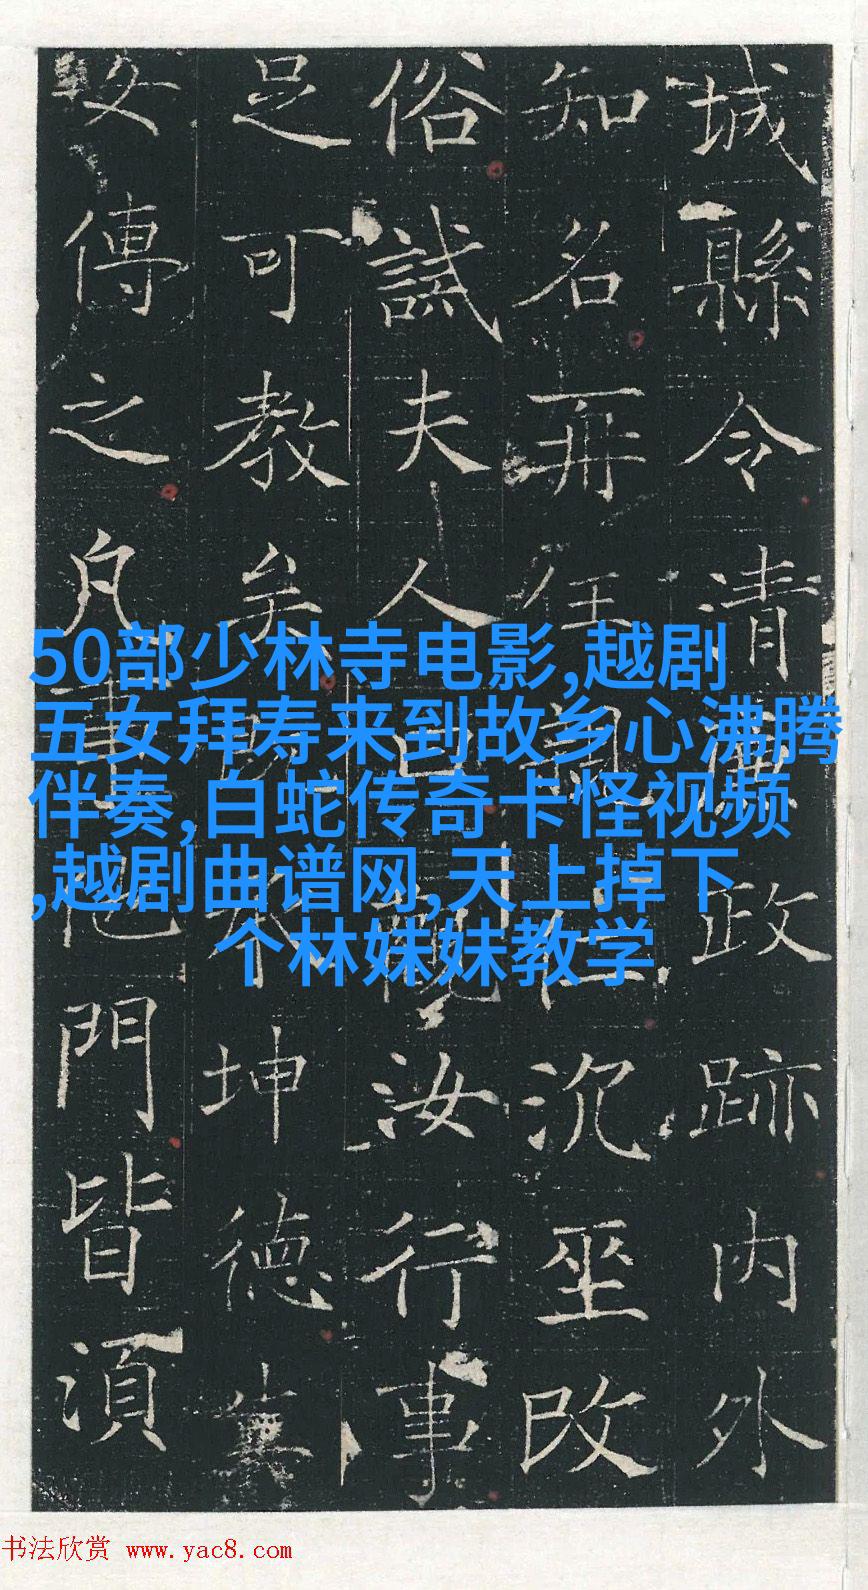 城縣令清政跡内外
知名再任沉坐改
俗試夫人曰觀汝行事
足可教矣坤德
女傳之凡他門皆須
50部少林寺电影,越剧
五女拜寿来到故乡心沸腾
伴奏,白蛇传奇卡怪视频
,越剧曲谱网,天上掉下
个林妹妹教学
书法欣赏 www.yac8.com